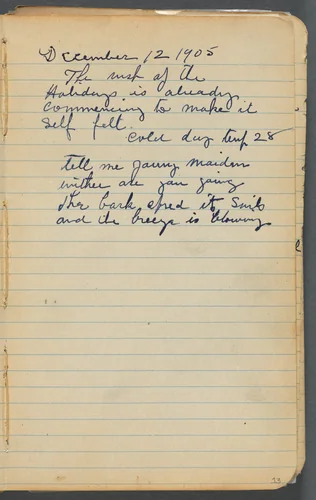 December 12 1905
The rush of the
Holidays is already
commencing to make it
self felt.
cold day temp 28
tell me young maiden
wither are you going
the bark spred it Sails
and the breeze is blowing